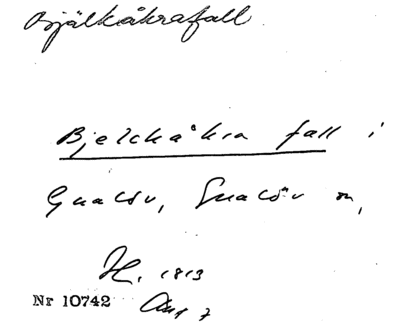 Bjälkåkrafall
Bjelckåkra fall i
Gualöv, Gualöv sn,
H. 1813
Nr 10742